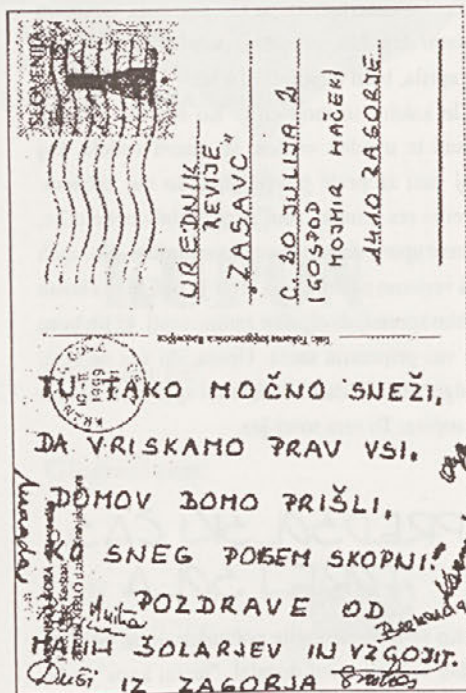 SLOVENIJA
UREDNIK
REVIJE
"ZASAVC"
C. 20. JULIJA 2
(GOSPOD
MOJMIR MAČEK)
1410 ZAGORJE
TU TAKO MOČNO SNEŽI,
DA VRISKAMO PRAV VSI.
DOMOV BOMO PRIŠLI,
KO SNEG POTEM SKOPNI!
POZDRAVE OD
MALIH ŠOLARJEV IN VZGOJIT.
IZ ZAGORJA